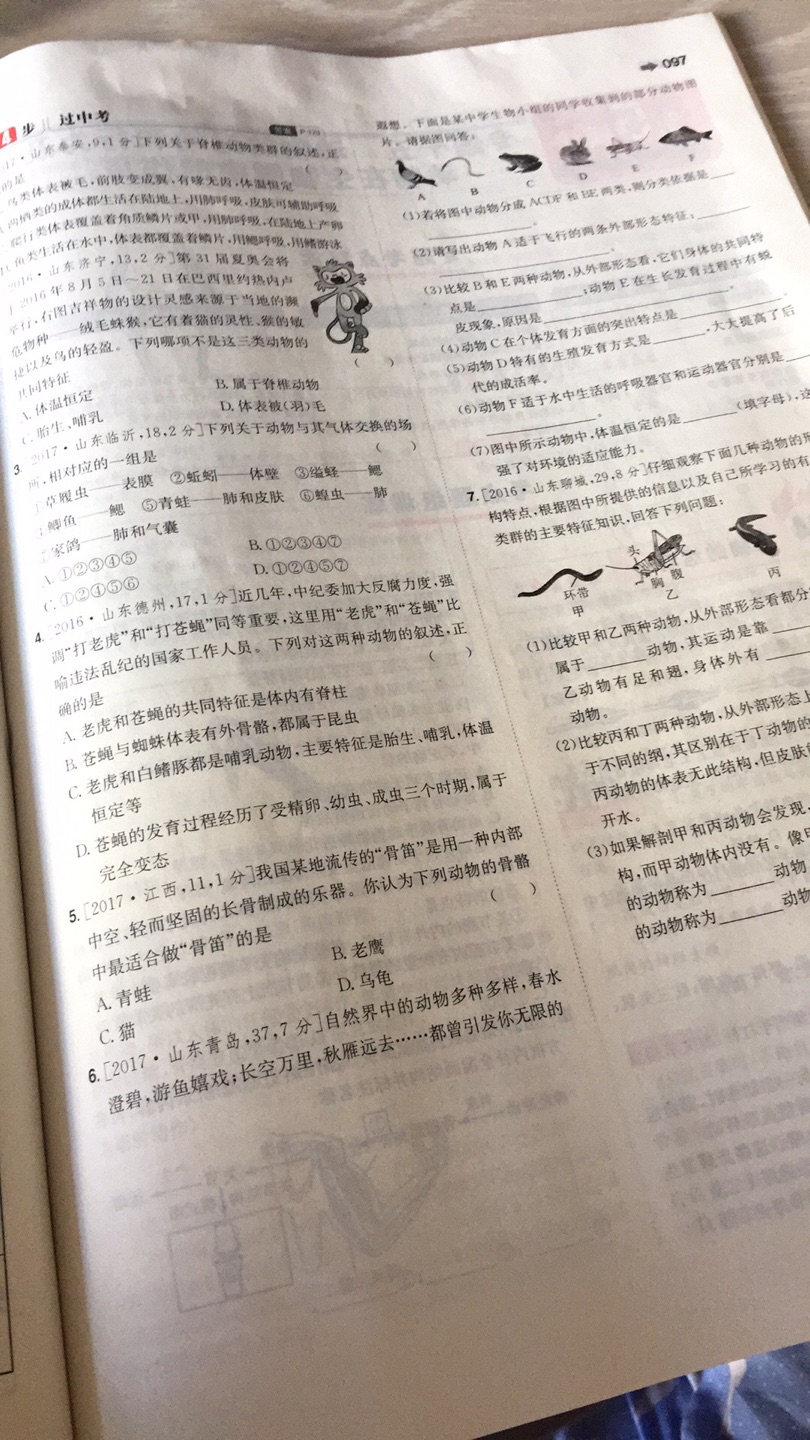 097
步 过中考
17·山东泰安,9,1分]下列关于脊椎动物类群的叙述,正
的是 ( )
鸟类体表被毛,前肢变成翼,有喙无齿,体温恒定
两栖类的成体都生活在陆地上,用肺呼吸,皮肤可辅助呼吸
爬行类体表覆盖着角质鳞片或甲,用肺呼吸,在陆地上产卵
D.鱼类生活在水中,体表都覆盖着鳞片,用鳃呼吸,用鳍游泳
2016·山东济宁,13,2分]第31届夏奥会将
于2016年8月5日～21日在巴西里约热内卢
举行,右图吉祥物的设计灵感来源于当地的濒
危物种——绒毛蛛猴,它有着猫的灵性、猴的敏
捷以及鸟的轻盈。下列哪项不是这三类动物的
共同特征 ( )
A.体温恒定 B.属于脊椎动物
C.胎生、哺乳 D.体表被(羽)毛
3. 2017·山东临沂,18,2分]下列关于动物与其气体交换的场
所,相对应的一组是 ( )
草履虫——表膜 ②蚯蚓——体壁 ③缢蛏——鳃
鲫鱼——鳃 ⑤青蛙——肺和皮肤 ⑥蝗虫——肺
家鸽——肺和气囊
A.①②③④⑤ B.①②③④⑦
C.①②④⑤⑥ D.①②④⑤⑦
4.[2016·山东德州,17,1分]近几年,中纪委加大反腐力度,强
调“打老虎”和“打苍蝇”同等重要,这里用“老虎”和“苍蝇”比
喻违法乱纪的国家工作人员。下列对这两种动物的叙述,正
确的是 ( )
A.老虎和苍蝇的共同特征是体内有脊柱
B.苍蝇与蜘蛛体表有外骨骼,都属于昆虫
C.老虎和白鳍豚都是哺乳动物,主要特征是胎生、哺乳,体温
恒定等
D.苍蝇的发育过程经历了受精卵、幼虫、成虫三个时期,属于
完全变态
5.[2017·江西,11,1分]我国某地流传的“骨笛”是用一种内部
中空、轻而坚固的长骨制成的乐器。你认为下列动物的骨骼
中最适合做“骨笛”的是 ( )
A.青蛙 B.老鹰
C.猫 D.乌龟
6.[2017·山东青岛,37,7分]自然界中的动物多种多样,春水
澄碧,游鱼嬉戏;长空万里,秋雁远去……都曾引发你无限的
遐想。下面是某中学生物小组的同学收集到的部分动物图
片。请据图回答:
A B C D E F
(1)若将图中动物分成ACDF和BE两类,则分类依据是
。
(2)请写出动物A适于飞行的两条外部形态特征:
。
(3)比较B和E两种动物,从外部形态看,它们身体的共同特
点是 ;动物E在生长发育过程中有蜕
皮现象,原因是 。
(4)动物C在个体发育方面的突出特点是 。
(5)动物D特有的生殖发育方式是 ,大大提高了后
代的成活率。
(6)动物F适于水中生活的呼吸器官和运动器官分别是
。
(7)图中所示动物中,体温恒定的是 (填字母),这
强了对环境的适应能力。
7.[2016·山东聊城,29,8分]仔细观察下面几种动物的形
构特点,根据图中所提供的信息以及自己所学习的有
类群的主要特征知识,回答下列问题:
环带
甲
头
胸 腹
乙
丙
(1)比较甲和乙两种动物,从外部形态看都分
属于 动物,其运动是靠
乙动物有足和翅,身体外有
动物。
(2)比较丙和丁两种动物,从外部形态上
于不同的纲,其区别在于丁动物的
丙动物的体表无此结构,但皮肤
开水。
(3)如果解剖甲和丙动物会发现,
构,而甲动物体内没有。像
的动物称为 动物
的动物称为 动物